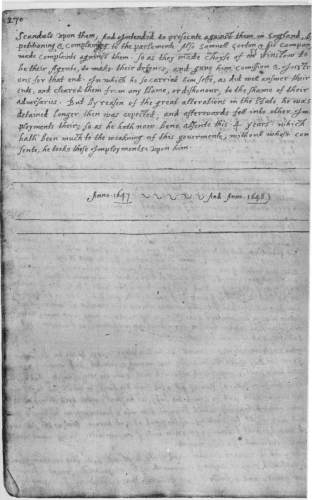 270
Scandals upon them, and intended to prosecute against them in England, by
petitioning & complaining to the parlemente. Allso Samuell Gorton & his company
made complaints against them. So as they made choyse of Mr Winslow to
be their Agente, to make their defence, and gave him comission & instruc-
tions for that end. In which he so carried him selfe, as did well answer their
ends, and cleared them from any blame, or dishonour, to the shame of their
adversaries. But by reason of the great alterations in the State, he was
detained longer then was expected, and afterwards fell into other Im-
ployments their; so as he hath now bene absente this 4 years, which
hath been much to the weakning of this govermente, without whose con-
sente, he tooke these imployments upon him.
Anno 1647. And Anno 1648.